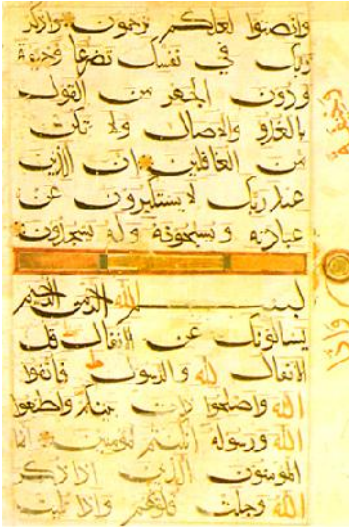 وانصتوا لعلكم ترحمون واذكر
ربك في نفسك تضرعا وخيفة
ودون الجهر من القول
بالغدو والاصال ولا تكن
من الغافلين ان الذين
عند ربك لا يستكبرون عن
عبادته ويسبحونه وله يسجدون
بسم الله الرحمن الرحيم
يسالونك عن الانفال قل
الانفال لله والرسول فاتقوا
الله واصلحوا ذات بينكم واطيعوا
الله ورسوله ان كنتم مومنين انما
المومنون الذين اذا ذكر
الله وجلت قلوبهم واذا تليت